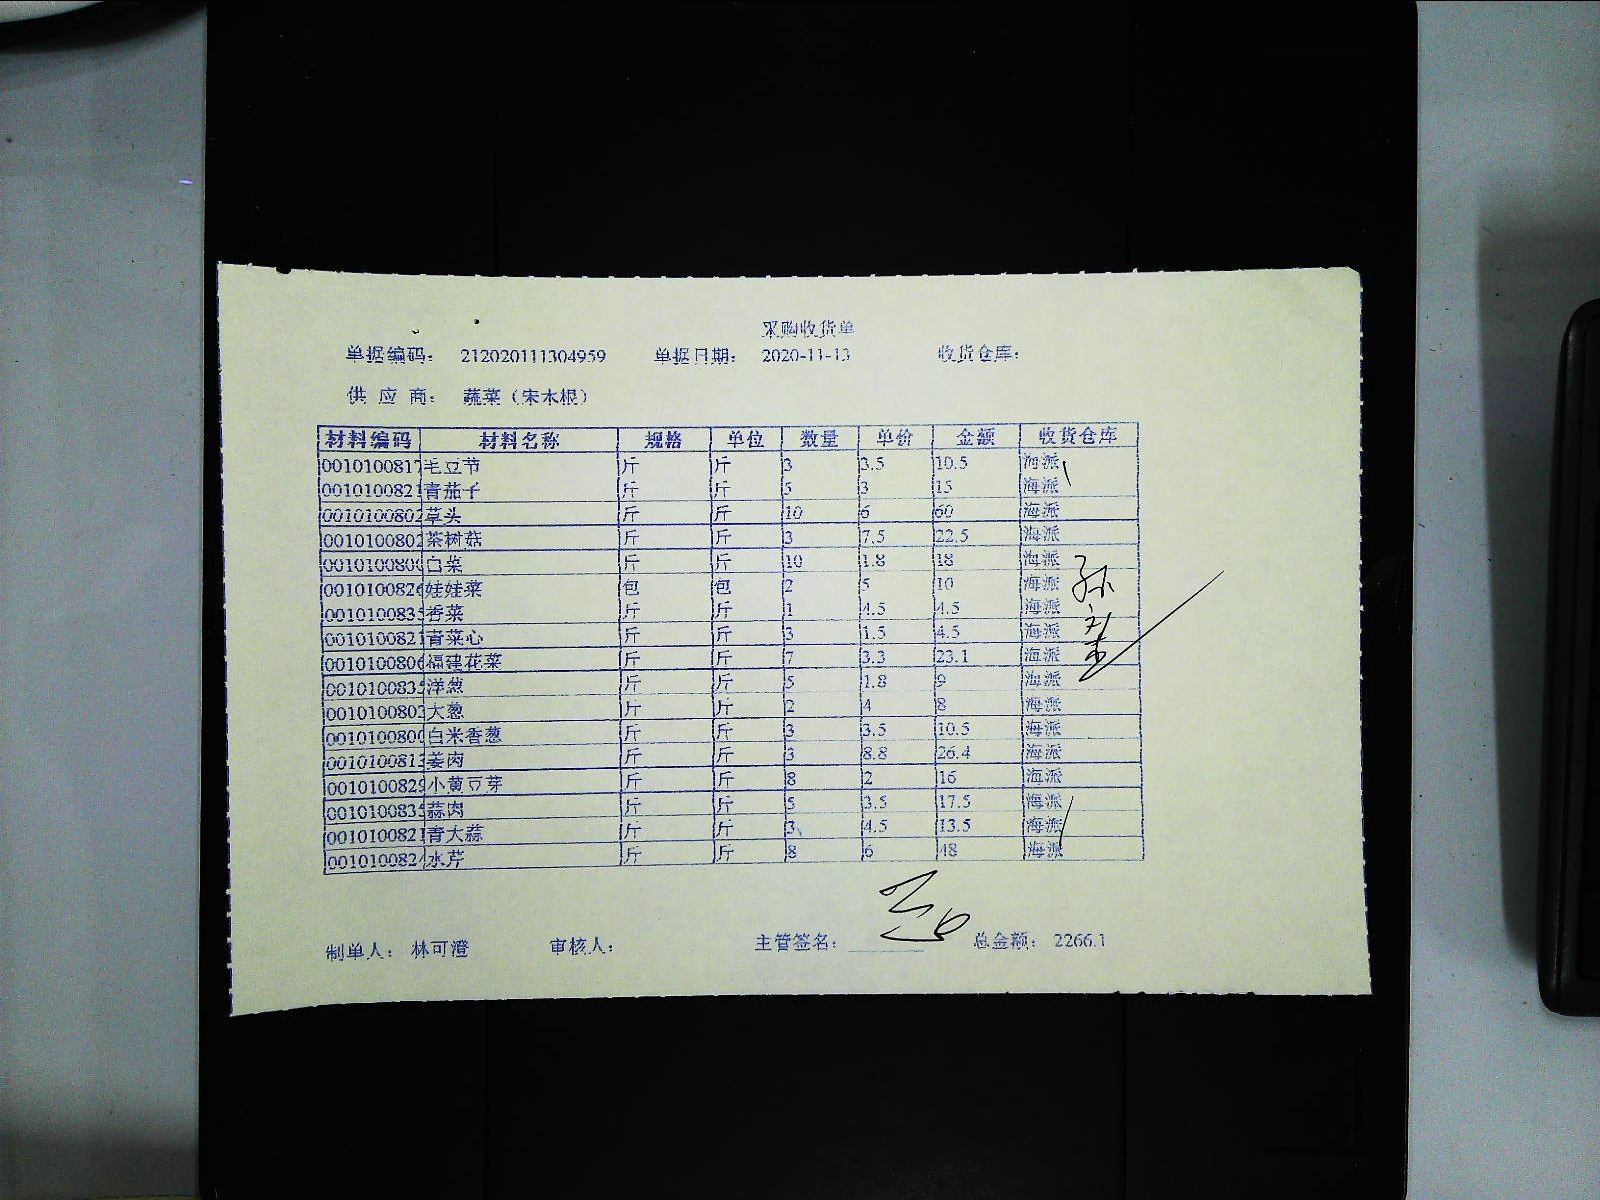 采购收货单
单据编码： 212020111304959 单据日期： 2020-11-13 收货仓库：
供 应 商： 蔬菜（宋木根）
材料编码 材料名称 规格 单位 数量 单价 金额 收货仓库
0010100817 毛豆节 斤 斤 3 3.5 10.5 海派
0010100821 青茄子 斤 斤 5 3 15 海派
0010100802 草头 斤 斤 10 6 60 海派
0010100802 茶树菇 斤 斤 3 7.5 22.5 海派
001010080 白菜 斤 斤 10 1.8 18 海派
001010082 娃娃菜 包 包 2 5 10 海派
001010083 香菜 斤 斤 1 4.5 4.5 海派
0010100821 青菜心 斤 斤 3 1.5 4.5 海派
001010080 福建花菜 斤 斤 7 3.3 23.1 海派
001010083 洋葱 斤 斤 5 1.8 9 海派
001010080 大葱 斤 斤 2 4 8 海派
001010080 白米香葱 斤 斤 3 3.5 10.5 海派
001010081 姜肉 斤 斤 3 8.8 26.4 海派
001010082 小黄豆芽 斤 斤 8 2 16 海派
001010083 蒜肉 斤 斤 5 3.5 17.5 海派
0010100821 青大蒜 斤 斤 3 4.5 13.5 海派
001010082 水芹 斤 斤 8 6 48 海派
制单人： 林可澄 审核人： 主管签名： 总金额： 2266.1